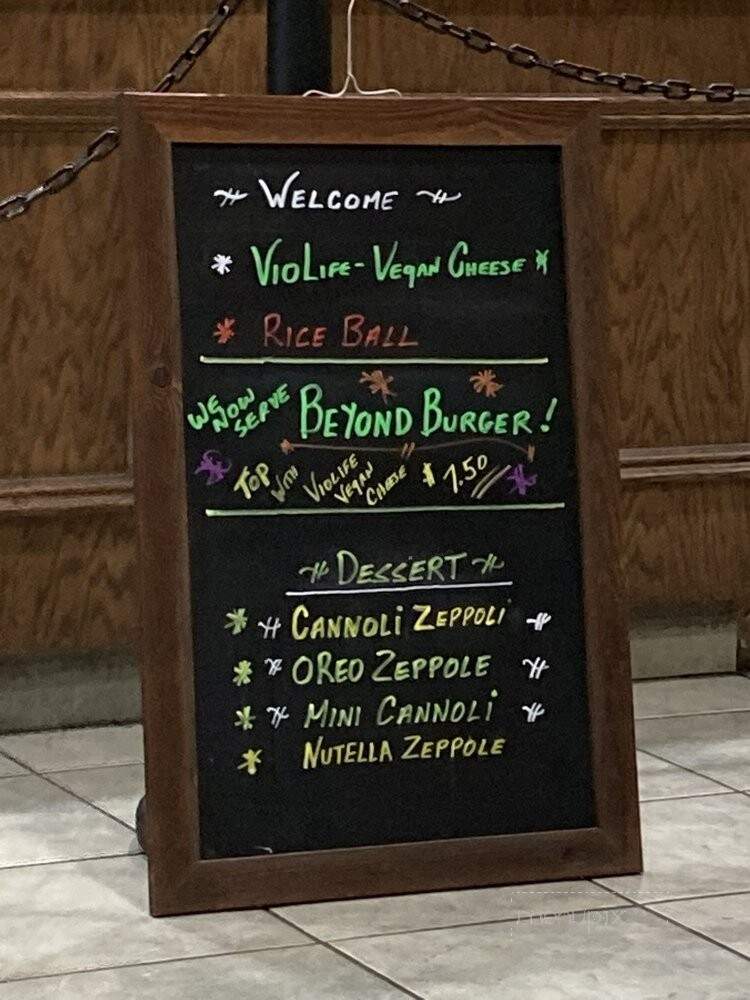 WELCOME
VIOLIFE - VEGAN CHEESE
RICE BALL
WE NOW SERVE BEYOND BURGER!
TOP WITH VIOLIFE VEGAN CHEESE $7.50
DESSERT
CANNOLI ZEPPOLI
OREO ZEPPOLE
MINI CANNOLI
NUTELLA ZEPPOLE
menupix